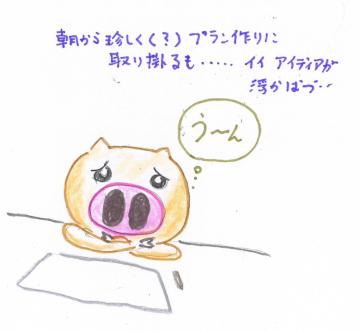 朝から珍しく(?)プラン作りに
取り掛るも····· イイ アイディアが
浮かばづ··
う〜ん